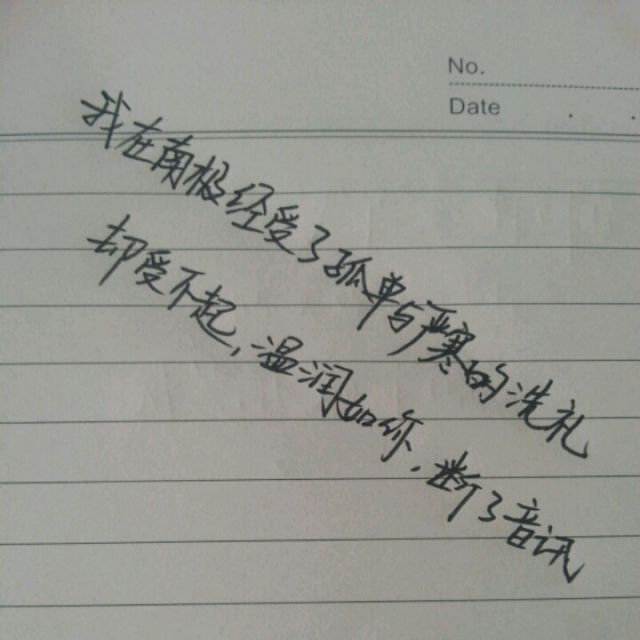 No.
Date
我在南极经受了孤单与严寒的洗礼
却受不起,温润如你.断了音讯